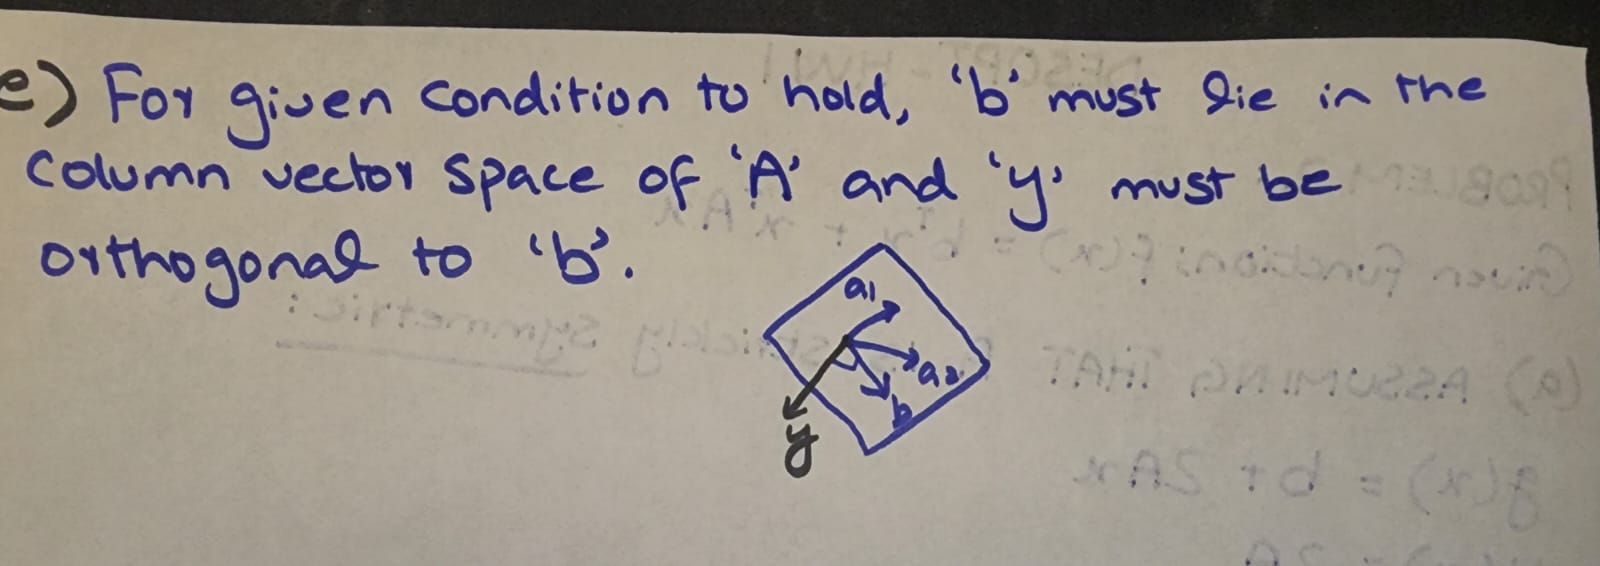 e) For given condition to hold, 'b' must lie in the
column vector space of 'A' and 'y' must be
orthogonal to 'b'.
a1
a2
b
y